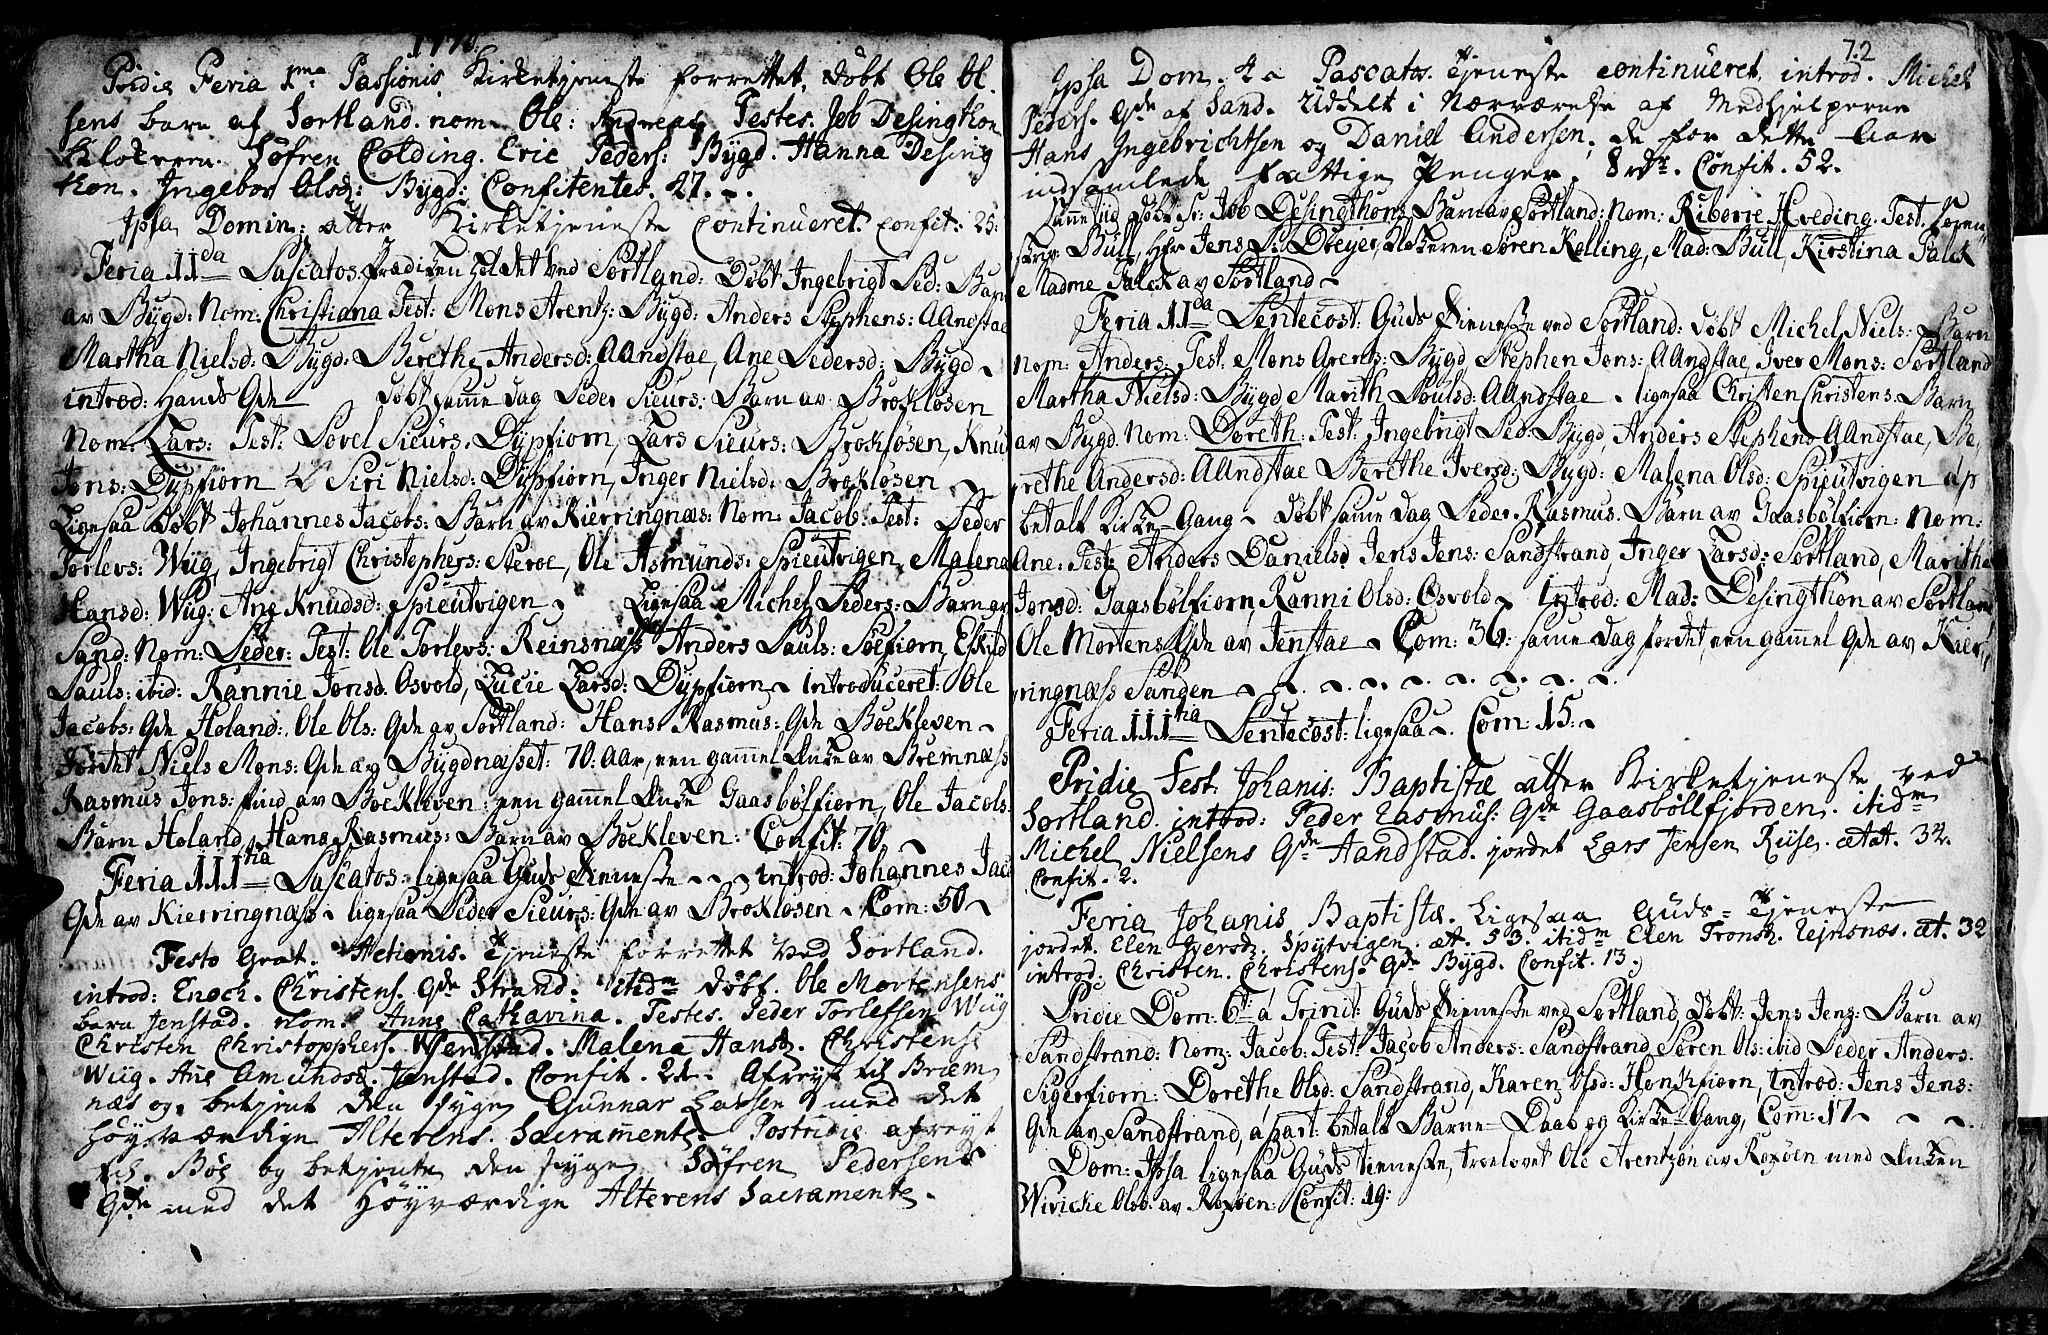 1770.
Pridie Feria 1ma Passionis. Kirketjeneste forrettet, døbt Ole Ol.
sens barn af Sortland. nom. Ole: Andreas Testes. Job Desingthon
Klokeren. Søfren Colding. Eric Peders: Bygd. Hanna Desing
thon. Ingebor Olsd: Bygd: Confitentes. 27.
Ipsa Domin: atter Kirketjeneste continueret. confit: 25:
Feria IIda Pascatos. Prædiken holdet ved Sortland: Døbt Ingebrigt Ped: Barn
av Bygd: Nom: Christiana Test: Mons Arentz: Bygd: Anders Stephens: AAndstae
Martha Nielsd: Bygd: Berethe Andersd: AAndstae, Ane Pedersd: Bygd
introd: Hands Qde døbt samme dag Peder Sieurs: Barn av Brokløsen
Nom: Lars: Test: Povel Sieurs. Dypfiorn, Lars Sieurs: Brokløsen, Knud
Jons: Dypfiorn Siri Nielsd: Dypfiorn, Inger Nielsd: Brokløsen
Ligesaa døbt Johannes Jacobs: Barn av Kierringnæs: Nom: Jacob: Test: Peder
Torlevs: Wiig, Ingebrigt Christophers: Steroe, Ole Asmunds: Spieutvigen, Malena
Hansd: Wiig: Ane Knudsd: Spieutvigen Ligesaa Michel Peders: Barn av
Sand: Nom: Peder: Test: Ole Torlevs: Reinsnæss Anders Pauls: Søefiorn, Eskild
Pauls: ibid: Rannie Jonsd: Osvold, Lucie Larsd: Dypfiorn introduceret: Ole
Jacobs: Qde Holand: Ole Ols: Qde av Sortland: Hans Rasmus: Qde Bøekleven
Jordet Niels Mons: Qde av Bygdnæsset: 70: Aar, een gammel Enke av Bremnæss
Rasmus Jons: av Bøekleven: een gammel Enke Gaasbølfiorn, Ole Jacobs:
Barn Holand, Hans Rasmus: Barn av Bøekleven: Confit: 70
Feria IIItia Pascatos: ligesaa Guds Tieneste introd: Johannes Jac
Qde av Kierringnæss ligesaa Peder Sieurs: Qde av Brokløsen Com: 50
Festo Grat. Actionis. Tjeneste forrettet ved Sortland.
introd: Enoch. Christens. Qde Strand. itidm døbt. Ole Mortensens
barn Jenstad. nom. Anne Catharina. Testes. Peder Torlefsen Wiig
Christen Christophers. Jenstad. Malena Hansd. Christense
Wiig. Ane Amundsd. Jenstad. Confit. 21. Afreyst til Brem
næs og betjent den syge Gunnar Larsen med det
høyværdige Alterens. Sacramente. Postridie afreyst
til. Bøe og betjente den syge Søfren Pedersens
Qde med det høyværdige Alterens Sacramente.
72
Ipsa Dom. 4 a Pascatos. Tjeneste continueret, introd. Michel
Peders. Qde af Sand. Uddelt i Nærværelse af Medhjelperne
Hans Ingebrichtsen og Daniel Andersen, de for dette Aar
indsamlede fattige Penger. 8 rdr. Confit. 52.
Samme tiid døbt Sr: Job Desingthons Barn av Sortland: Nom: Riborie Hveding. Test: Soren-
skriv: Bull, Hr Jens S: Dreyer, Klokeren Søren Kolling, Mad: Bull, Kirstina Falck
Madme Falck av Sortland
Feria IIda Pentecost: Guds Tieneste ved Sortland: døbt Michel Niels: Barn
Nom: Anders Test: Mons Arents: Bygd Stephen Jons: AAndstae, Iver Mons: Sortland
Martha Nielsd: Bygd Marith Poulsd: AAndstae ligesaa Christen Christens: Barn
av Bygd: Nom: Doreth: Test: Ingebrigt Ped: Bygd, Anders Stephens AAndstae, Be,
rethe Andersd: AAndstae Berethe Iversd: Bygd: Malena Olsd: Spieutvigen ap
betalt Kirke-Gang døbt samme dag Peder Rasmus: Barn av Gaasbølfiorn: Nom:
Ane: Test: Anders Danielsd Jens Jens: Sandstrand, Inger Larsd: Sortland, Marithe
Jonsd: Gaasbølfiorn, Ranni Olsd: Osvold Introd: Mad: Desingthon av Sortland
Ole Mortens Qde av Jenstae Com: 36: samme dag jordet, een gammel Qde av Kier-
ringnæss Sanden
Feria IIItia Pentecost: ligesaa. Com: 15:
Pridie Fest: Johanis: Baptistæ atter Kirketjeneste ved
Sortland. introd: Peder Rasmus: Qde Gaasböllfjorden. itidm
Michel Nielsens Qde Aandstad. jordet Lars Jensen Riise. ætat. 32.
Confit. 2.
Feria Johanis Baptistæ. Ligesaa Guds-Tjeneste
jordet. Elen Iversd. Spytvigen. æt. 53. itidm Elen Tronsd. Rejnsnæs. æt. 32
introd: Christen. Christens. Qde Bygd. Confit. 13.
Pridie Dom: 6ti a Trinit: Guds Tieneste ved Sortland, Døbt: Jens Jens: Barn av
Sandstrand: Nom: Jacob: Test: Jacob Anders: Sandstrand Søren Ols: ibid Peder Anders:
Sigerfiorn: Dorethe Olsd: Sandstrand, Karen Olsd: Honkfiorn, Introd: Jens Jens:
Qde av Sandstrand, apart: betalt Barne-Daab og Kirke-Gang, Com: 17
Dom: Ipsa ligesaa Guds tieneste, troelovet Ole Arentzøn av Roxøen med Enken
Wivicke Olsd: av Roxøen: Confit: 19: